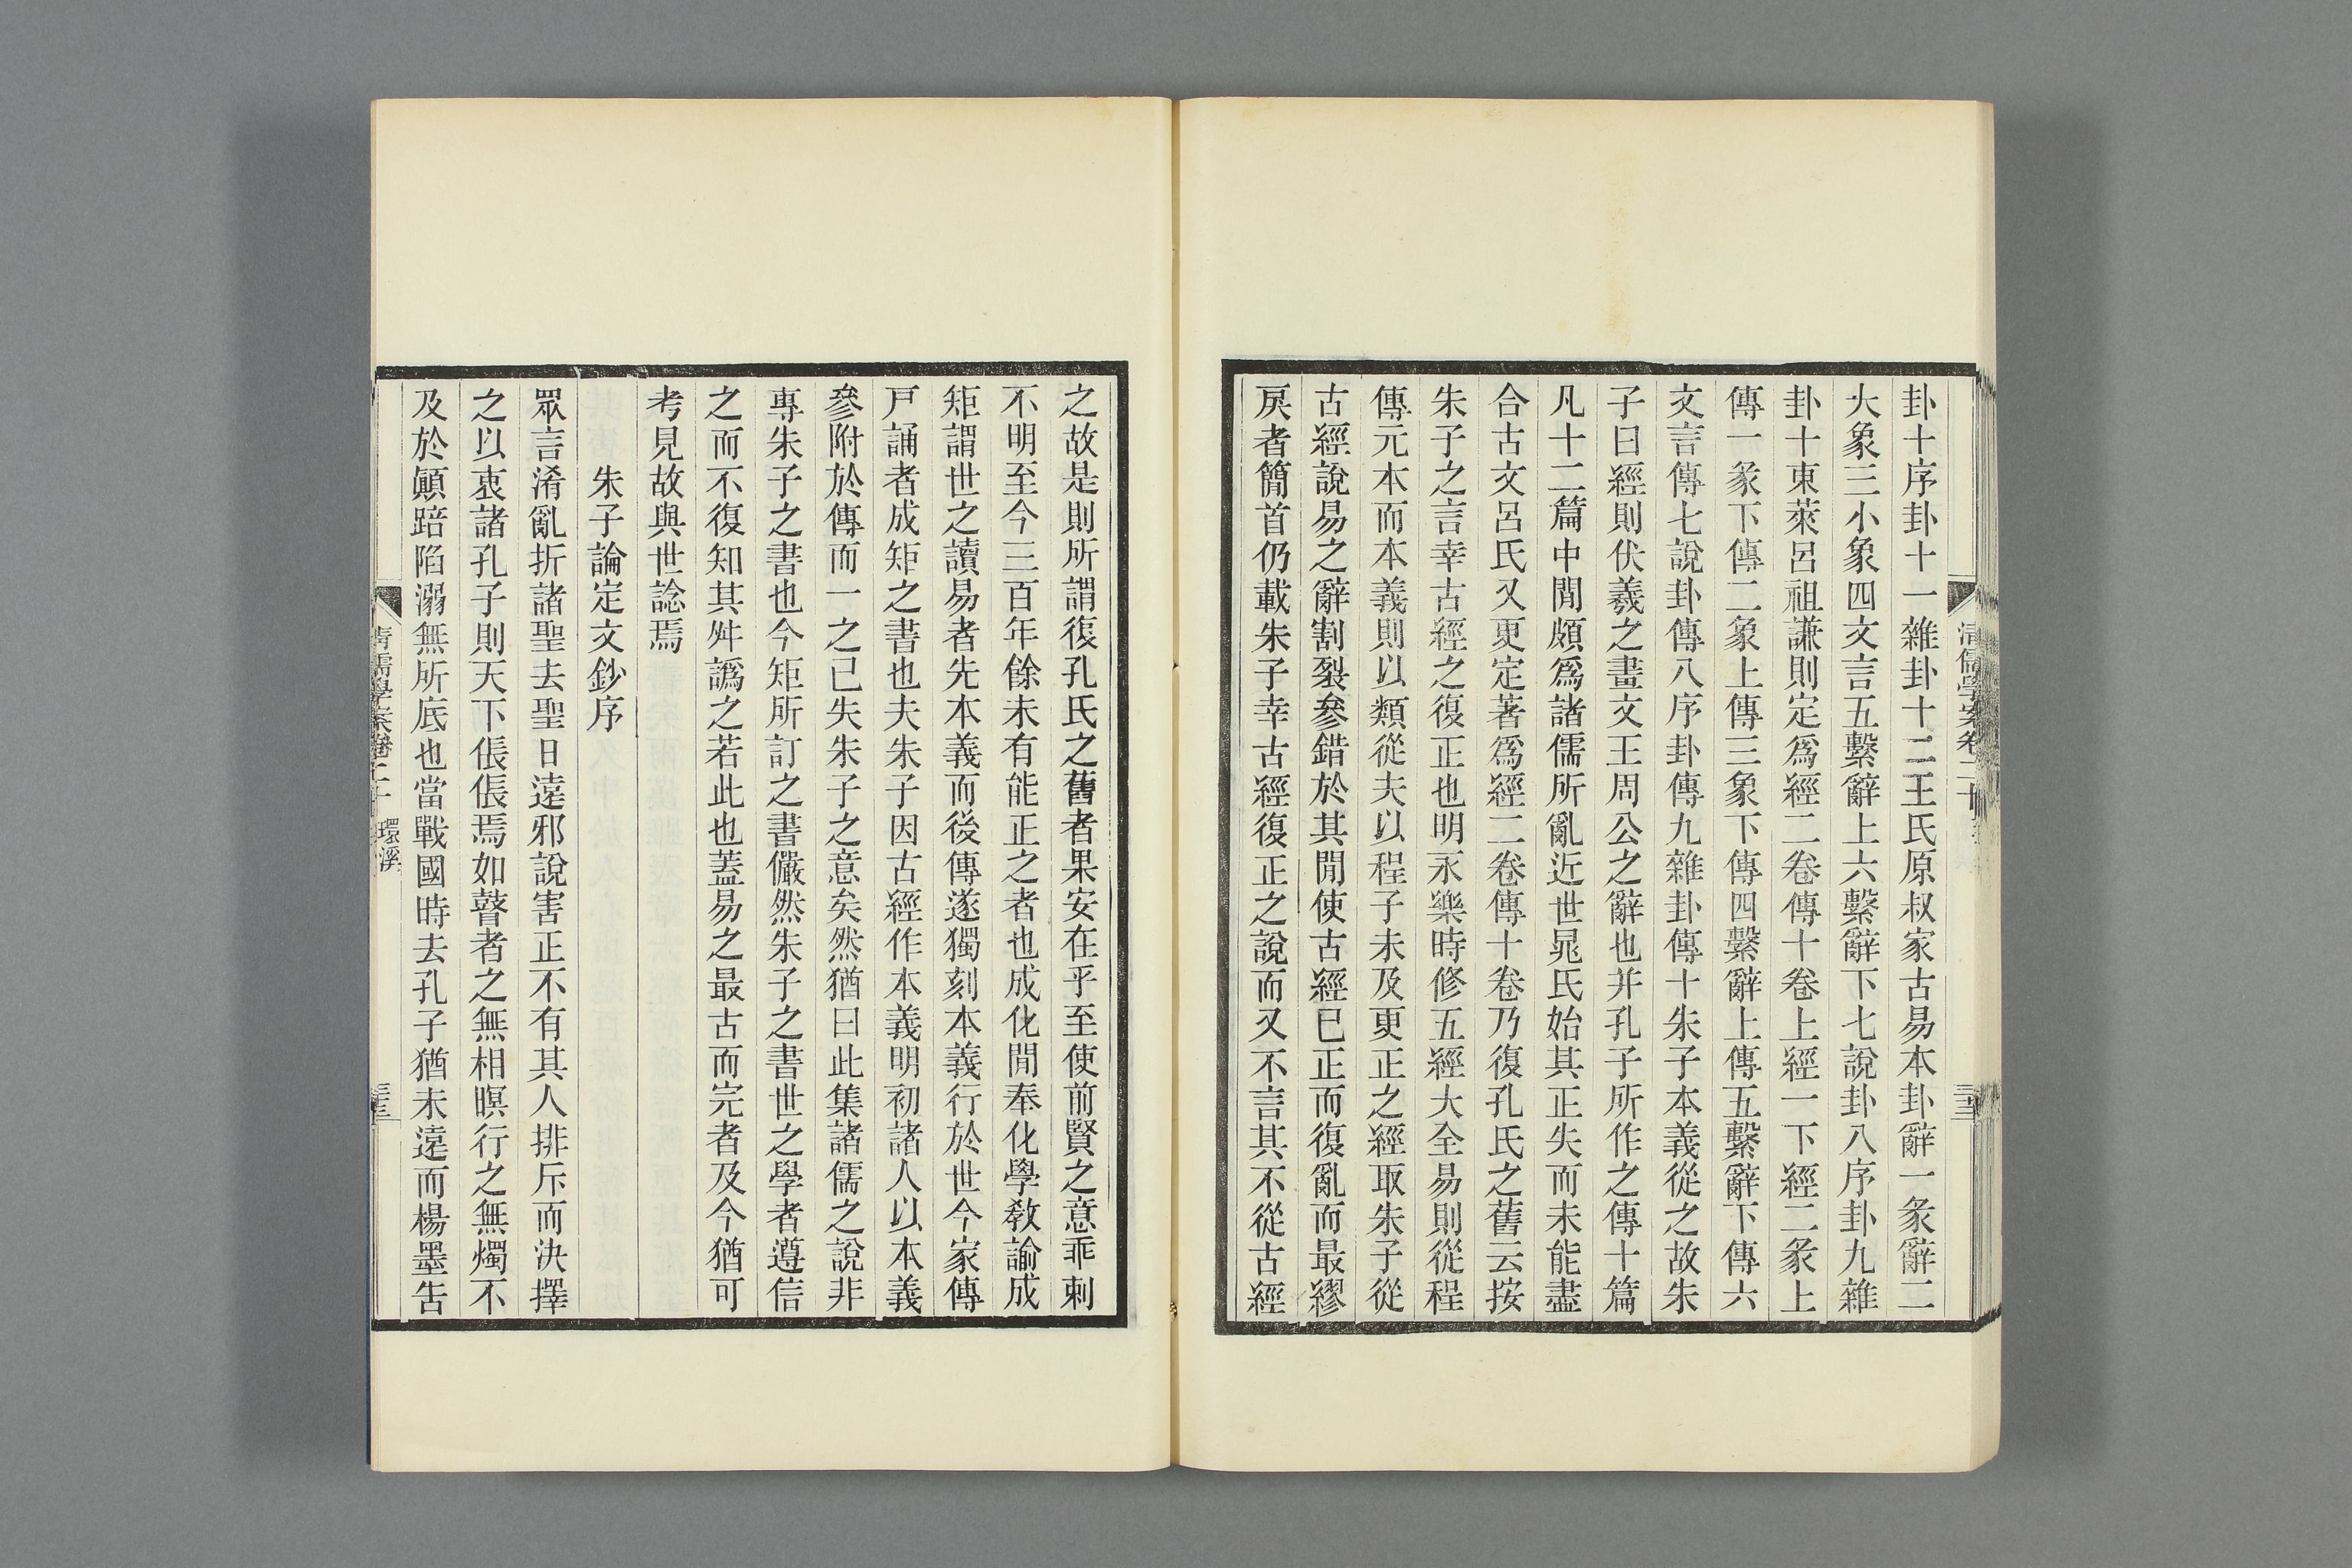 卦十序卦十一雜卦十二王氏原叔家古易本卦辭一彖辭二
大象三小象四文言五繫辭上六繫辭下七說卦八序卦九雜
卦十東萊呂祖謙則定爲經二卷傳十卷上經一下經二彖上
傳一彖下傳二象上傳三象下傳四繫辭上傳五繫辭下傳六
文言傳七說卦傳八序卦傳九雜卦傳十朱子本義從之故朱
子曰經則伏羲之畫文王周公之辭也并孔子所作之傳十篇
凡十二篇中閒頗爲諸儒所亂近世晁氏始其正失而未能盡
合古文呂氏又更定著爲經二卷傳十卷乃復孔氏之舊云按
朱子之言幸古經之復正也明永樂時修五經大全易則從程
傳元本而本義則以類從夫以程子未及更正之經取朱子從
古經說易之辭割裂參錯於其閒使古經已正而復亂而最繆
戾者簡首仍載朱子幸古經復正之說而又不言其不從古經
之故是則所謂復孔氏之舊者果安在乎至使前賢之意乖剌
不明至今三百年餘未有能正之者也成化閒奉化學敎諭成
矩謂世之讀易者先本義而後傳遂獨刻本義行於世今家傳
戶誦者成矩之書也夫朱子因古經作本義明初諸人以本義
參附於傳而一之已失朱子之意矣然猶曰此集諸儒之說非
專朱子之書也今矩所訂之書儼然朱子之書世之學者遵信
之而不復知其舛譌之若此也蓋易之最古而完者及今猶可
考見故與世諗焉
朱子論定文鈔序
眾言淆亂折諸聖去聖日遠邪說害正不有其人排斥而決擇
之以衷諸孔子則天下倀倀焉如瞽者之無相暝行之無燭不
及於顚踣陷溺無所底也當戰國時去孔子猶未遠而楊墨告
清儒學案卷二十 環溪